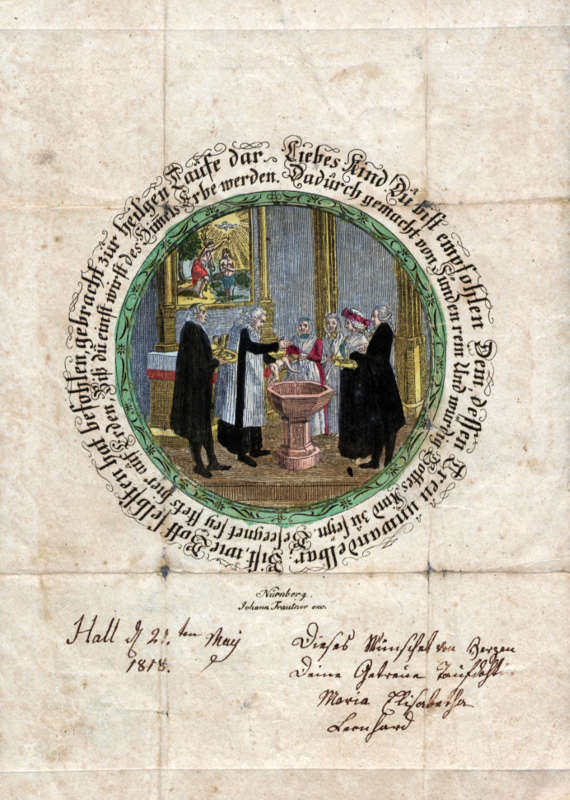 Liebes Kind! Du bist empfohlen Dem, dessen Treu unwandelbar, Bist, wie Gott selbsten hat befohlen, gebracht zur heilgen Taufe dar.
Dadurch gemacht von Sünden rein Und würdig Gottes Kind zu seyn. Geseegnet sey stets hier auf Erden Biß du einst wirst des Himels Erbe werden.
Nürnberg.
Johann Trautner exc.
Hall d 21.ten May
1818.
Dieses Wünschet von Herzen
Deine Getreue
Maria Elisabetha
Leonhard